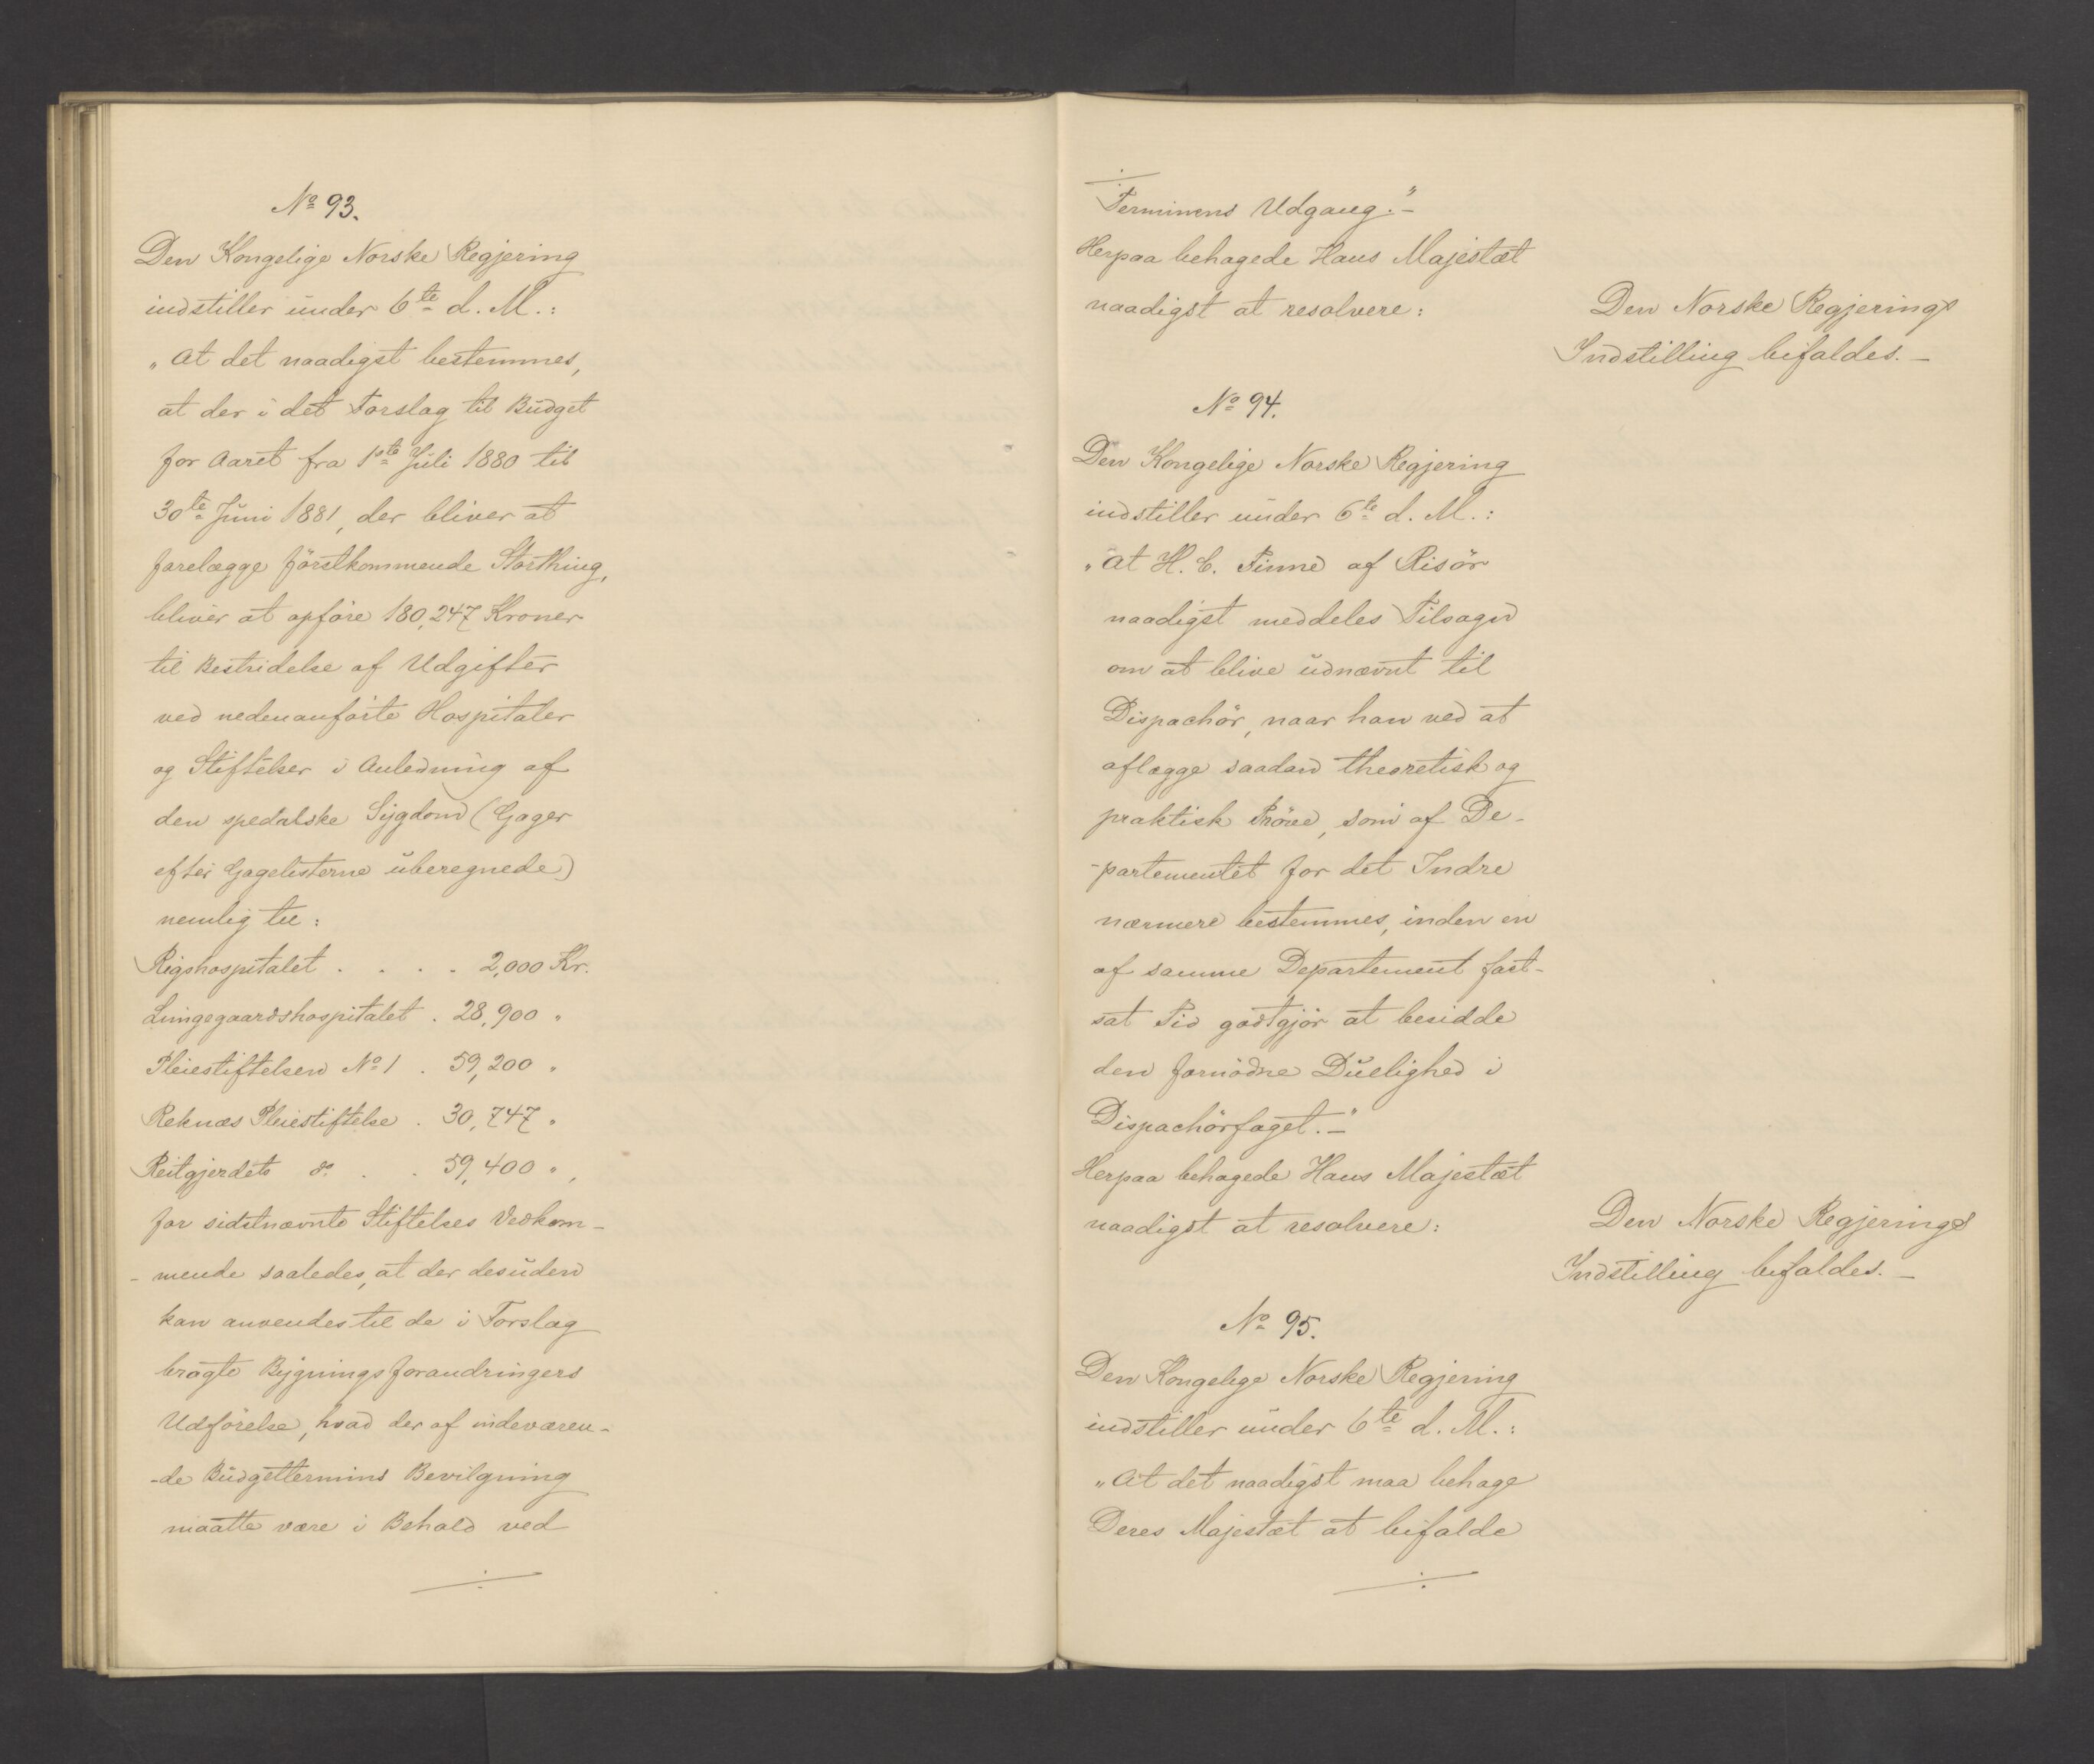 No 93.
Den Kongelige Norske Regjering
indstiller under 6te d. M.:
„At det naadigst bestemmes,
at der i det Forslag til Budget
for Aaret fra 1ste Juli 1880 til
30te Juni 1881, der bliver at
forelægge förstkommende Storthing,
bliver at opføre 180,247 Kroner
til Bestridelse af Udgifter
ved nedenanførte Hospitaler
og Stiftelser i Anledning af
den spedalske Sygdom (Gager
efter Gagelisterne uberegnede)
nemlig til:
Rigshospitalet . . . . 2,000 Kr.
Lungegaardshospitalet . 28,900 "
Pleiestiftelsen No 1 . 59,200 "
Reknæs Pleiestiftelse . 30,747 "
Reitgjerdets do . . 59,400 ",
for sidstnævnte Stiftelses Vedkom-
-mende saaledes, at der desuden
kan anvendes til de i Forslag
bragte Bygningsforandringers
Udførelse, hvad der af indeværen-
-de Budgettermins Bevilgning
maatte være i Behold ved
./.
./.
Terminens Udgang."-
Herpaa behagede Hans Majestæt
naadigst at resolvere:
Den Norske Regjerings
Indstilling bifaldes.-
No 94.
Den Kongelige Norske Regjering
indstiller under 6te d. M.:
„At H. C. Finne af Risör
naadigst meddeles Tilsagn
om at blive udnævnt til
Dispachör, naar han ved at
aflægge saadan theoretisk og
praktisk Pröve, som af De-
-partementet for det Indre
nærmere bestemmes, inden en
af samme Departement fast-
sat Tid godtgjör at besidde
den fornödne Duelighed i
Dispachörfaget."-
Herpaa behagede Hans Majestæt
naadigst at resolvere:
Den Norske Regjerings
Indstilling bifaldes.-
No 95.
Den Kongelige Norske Regjering
indstiller under 6te d. M.:
„At det naadigst maa behage
Deres Majestæt at bifalde
./.